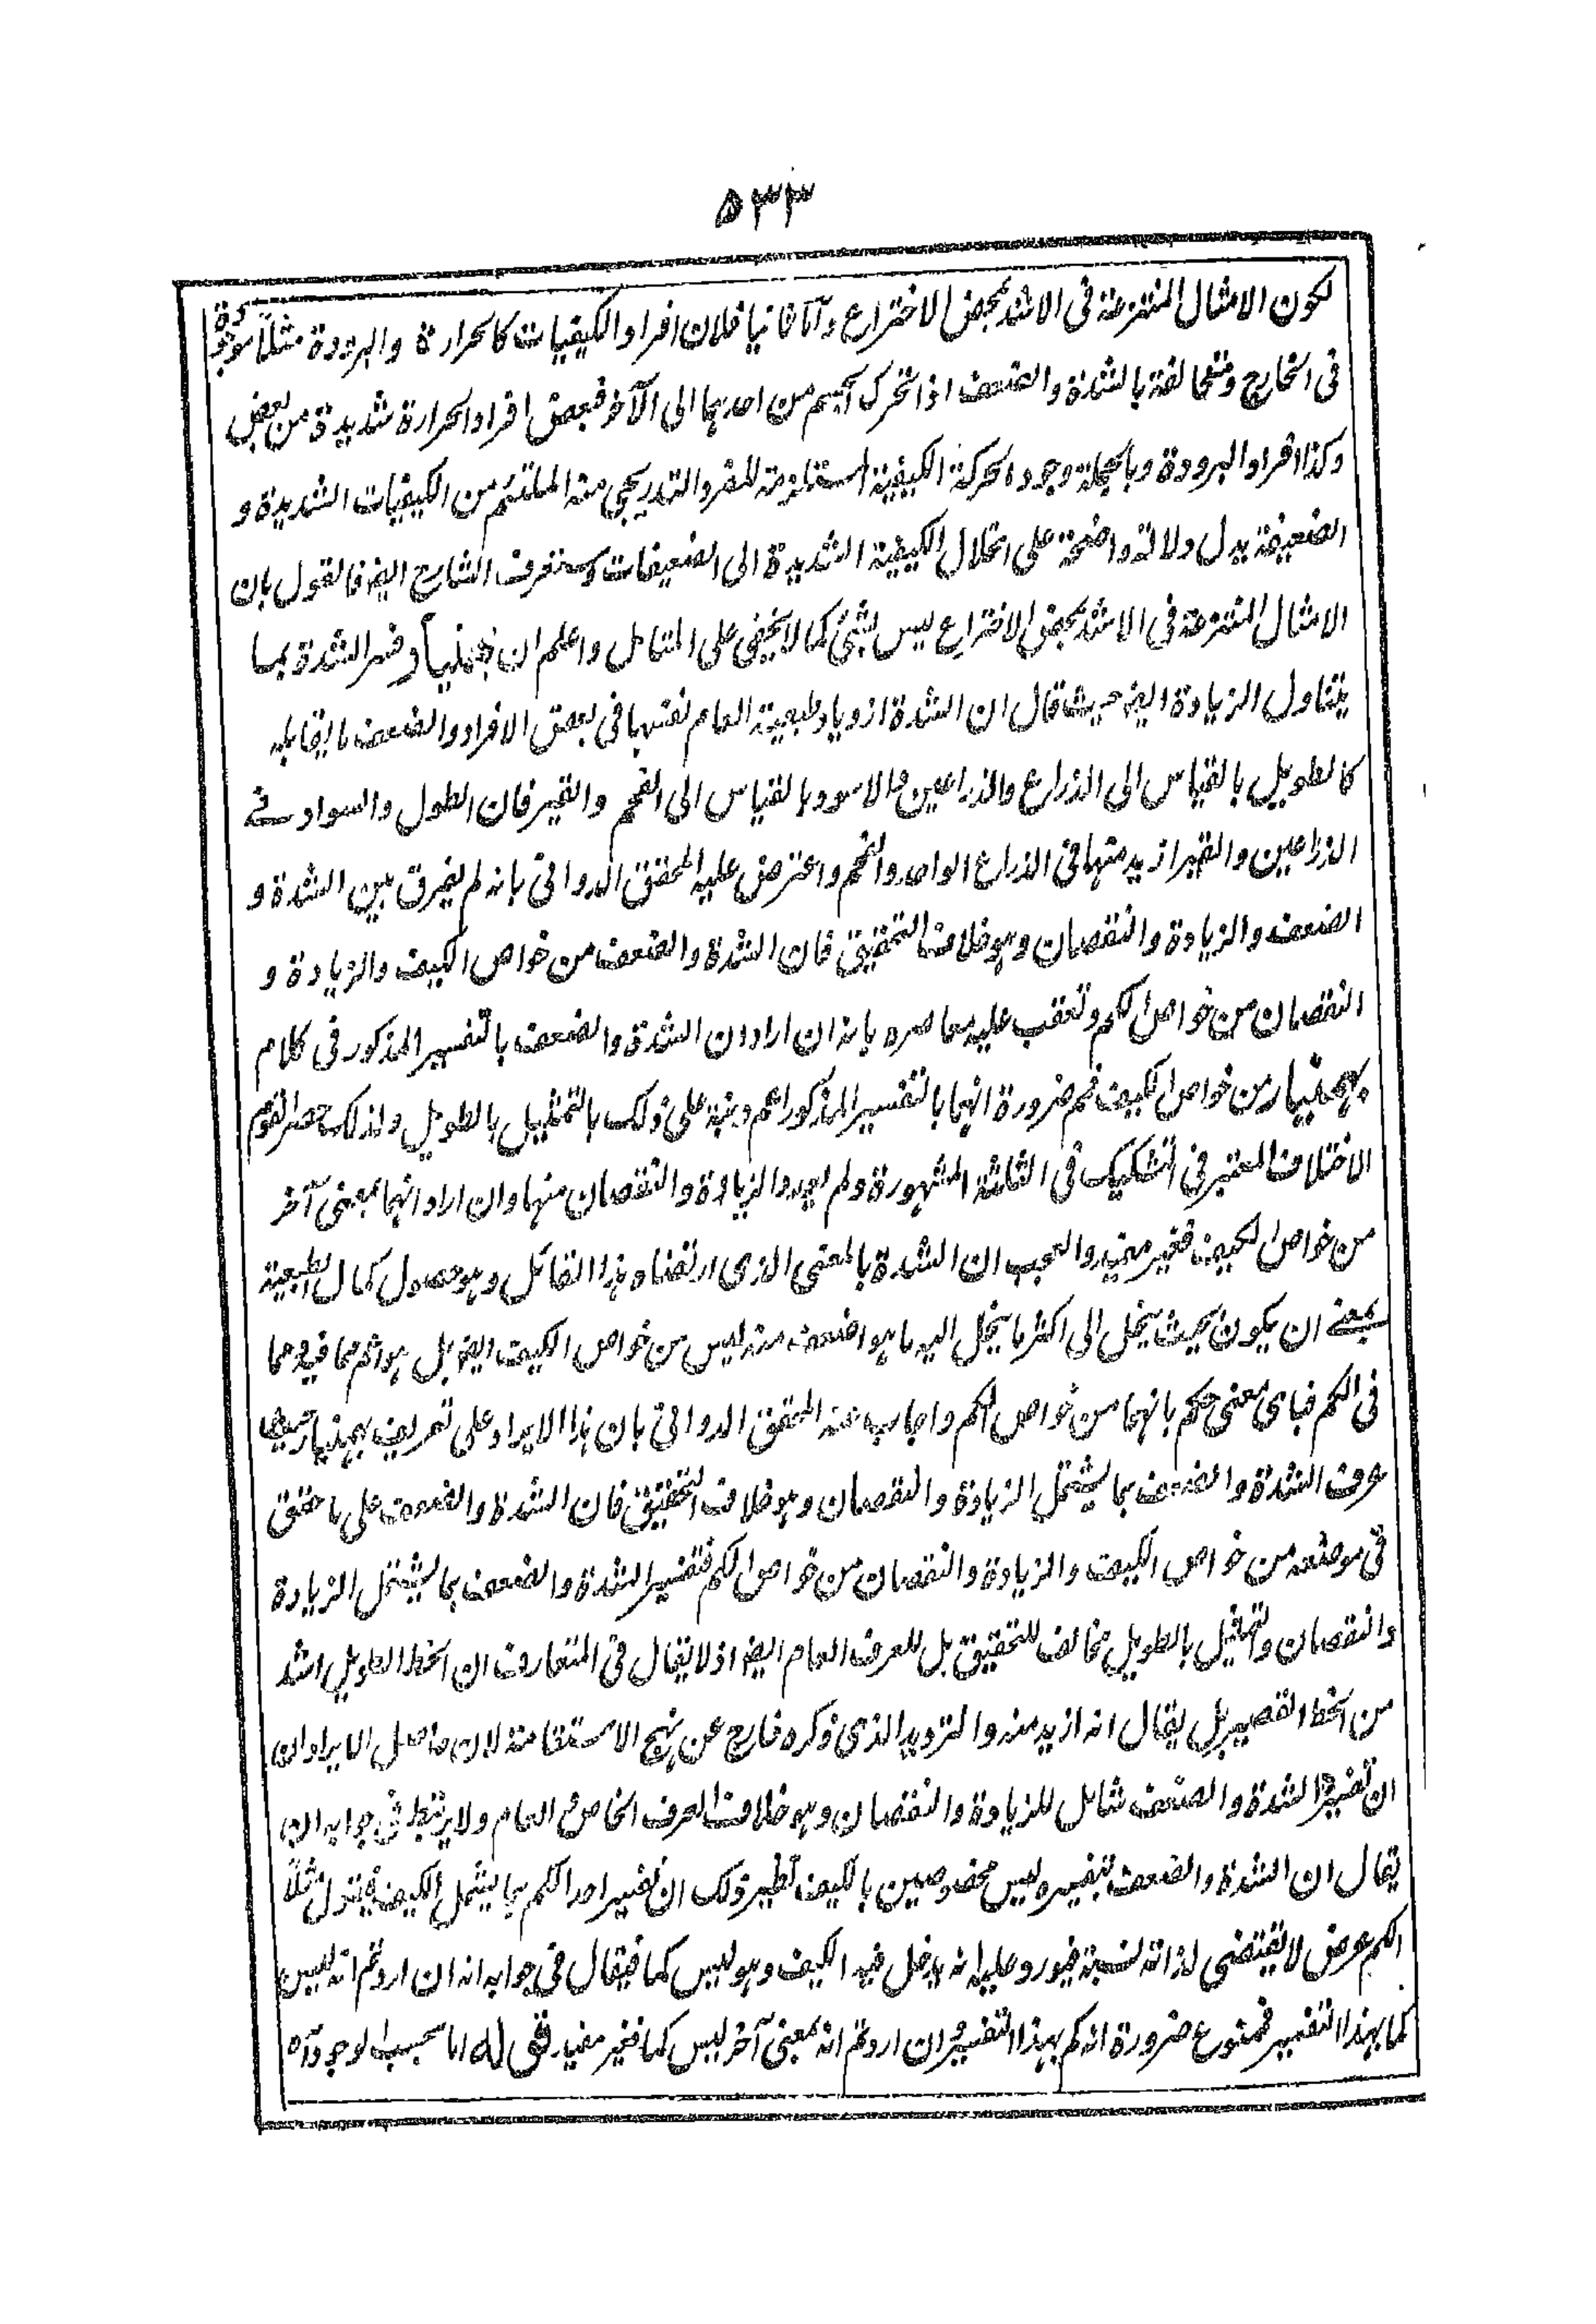 ۵۳۳
لكون الامثال المنتزعة فى الاشد بمحض الاختراع وآما ثانيا فلان افراد الكيفيات كالحرارة والبرودة مثلًا موجودة
فى الخارج ومتخالفة بالشدة والضعف اذا تحرك الجسم من احدهما الى الآخر فبعض افراد الحرارة شديدة من بعض
وكذا افراد البرودة وبالجملة وجود الحركة الكيفية المستلزمة للفرد التدريجى منه الملتئم من الكيفيات الشديدة و
الضعيفة يدل دلالة واضحة على انحلال الكيفية الشديدة الى الضعيفات وستعرف الشارح ايضا فالقول بان
الامثال المنتزعة فى الاشد بمحض الاختراع ليس بشئ كما لا يخفى على المتامل واعلم ان بهمنيار فسر الشدة بما
يتناول الزيادة ايضا حيث قال ان الشدة ازدياد طبيعة العام نفسها فى بعض الافراد والضعف ما يقابله
كالطويل بالقياس الى الذراع والذراعين والاسود بالقياس الى الفحم والقير فان الطول والسواد فے
الذراعين والقير ازيد منها فى الذراع الواحد والفحم واعترض عليه المحقق الدوانى بانه لم يفرق بين الشدة و
الضعف والزيادة والنقصان وهو خلاف التحقيق فان الشدة والضعف من خواص الكيف والزيادة و
النقصان من خواص الكم وتعقب عليه معاصره بانه ان اراد ان الشدة والضعف بالتفسير المذكور فى كلام
بهمنيار من خواص الكيف فمم ضرورة انهما بالتفسير المذكور اعم ونبه على ذلك بالتمثيل بالطويل ولذلك حصر القوم
الاختلاف المعتبر فى التشكيك فى الثلثة المشهورة ولم يعدوا الزيادة والنقصان منها وان اراد انهما بمعنى آخر
من خواص الكيف فغير مفيد والعجب ان الشدة بالمعنى الذى ارتضاه هذا القائل وهو حصول كمال الطبيعة
بمعنے ان يكون بحيث ينحل الى اكثر ما ينحل اليه ما هو اضعف منه ليس من خواص الكيف ايضا بل هو اعم مما فيه ومما
فى الكم فباى معنى حكم بانهما من خواص الكم واجاب عنه المحقق الدوانى بان هذا الايراد على تعريف بهمنيار حيث
عرف الشدة والضعف بما يشتمل الزيادة والنقصان وهو خلاف التحقيق فان الشدة والضعف على ما حقق
فى موضعه من خواص الكيف والزيادة والنقصان من خواص الكم فتفسير الشدة والضعف بما يشتمل الزيادة
والنقصان والتمثيل بالطويل مخالف للتحقيق بل للعرف العام ايضا اذ لا يقال فى المتعارف ان الخط الطويل اشد
من الخط القصير بل يقال انه ازيد منه والترديد الذى ذكره خارج عن نهج الاستقامة لان حاصل الايراد ان
ان تفسير الشدة والضعف شامل للزيادة والنقصان وهو خلاف العرف الخاص والعام ولا يرتبط فى جوابه ان
يقال ان الشدة والضعف بتفسيره ليس مخصوصين بالكيف نظير ذلك ان تفسير احد الكم بما يشمل الكيف فيقول مثلًا
الكم عرض لا يقتضى لذاته نسبة فيورد عليه انه يدخل فيه الكيف وهو ليس كما فيقال فى جوابه انه ان اردتم انه ليس
كما بهذا التفسير فممنوع ضرورة انه كم بهذا التفسير وان اردتم انه بمعنى آخر ليس كما فغير مفيد قوله اما بحسب الوجود آه